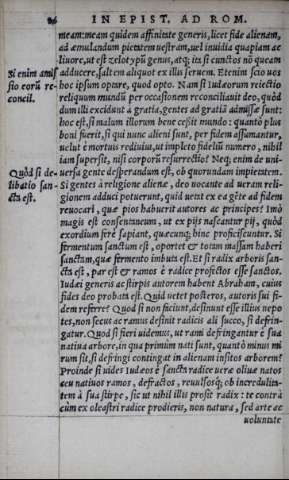 96 IN EPIST. AD ROM.
meam: meam quidem affinitate generis, licet fide alienam,
ad æmulandum pietatem uestram, uel inuidia quapiam ac
liuore, ut est zelotypū genus, atq; ita si cunctos nō queam
Si enim amis adducere, saltem aliquot ex illis seruem. Etenim scio uos
sio eorū re= hoc ipsum optare, quod opto. Nam si Iudæorum reiectio
concil. reliquum mundū per occasionem reconciliauit deo, quòd
dum illi excidunt à gratia, gentes ad gratiā admissæ sunt:
hoc est, si malum illorum bene cessit mundo: quantò plus
boni fuerit, si qui nunc alieni sunt, per fidem assumantur,
uelut è mortuis rediuiui, ut impleto fidelū numero, nihil
iam supersit, nisi corporū resurrectio? Neq; enim de uni=
Quòd si de= uersa gente desperandum est, ob quorundam impietatem.
libatio san= Si gentes à religione alienæ, deo uocante ad ueram reli=
cta est. gionem adduci potuerunt, quid uetat ex ea gēte ad fidem
reuocari, quæ pios habuerit autores ac principes? Imò
magis est consentaneum, ut ex pijs nascantur pij, quòd
exordium ferè sapiant, quæcunq; hinc proficiscuntur. Si
fermentum sanctum est, oportet & totam massam haberi
sanctam, quæ fermento imbuta est. Et si radix arboris san=
cta est, par est & ramos è radice profectos esse sanctos.
Iudæi generis ac stirpis autorem habent Abraham, cuius
fides deo probata est. Quid uetet posteros, autoris sui fi=
dem referre? Quod si non faciunt, desinunt esse illius nepo
tes, non secus ac ramus desinit radicis ali succo, si defrin=
gatur. Quod si fieri uidemus, ut rami defringantur è sua
natiua arbore, in qua primum nati sunt, quantò minus mi
rum sit, si defringi contingat in alienam insitos arborem?
Proinde si uides Iudæos è sancta radice ueræ oliuæ natos
ceu natiuos ramos, defractos, reuulsosq; ob incredulita=
tem à sua stirpe, sic ut nihil illis prosit radix: te contrà
cùm ex oleastri radice prodieris, non natura, sed arte ac
uoluntate